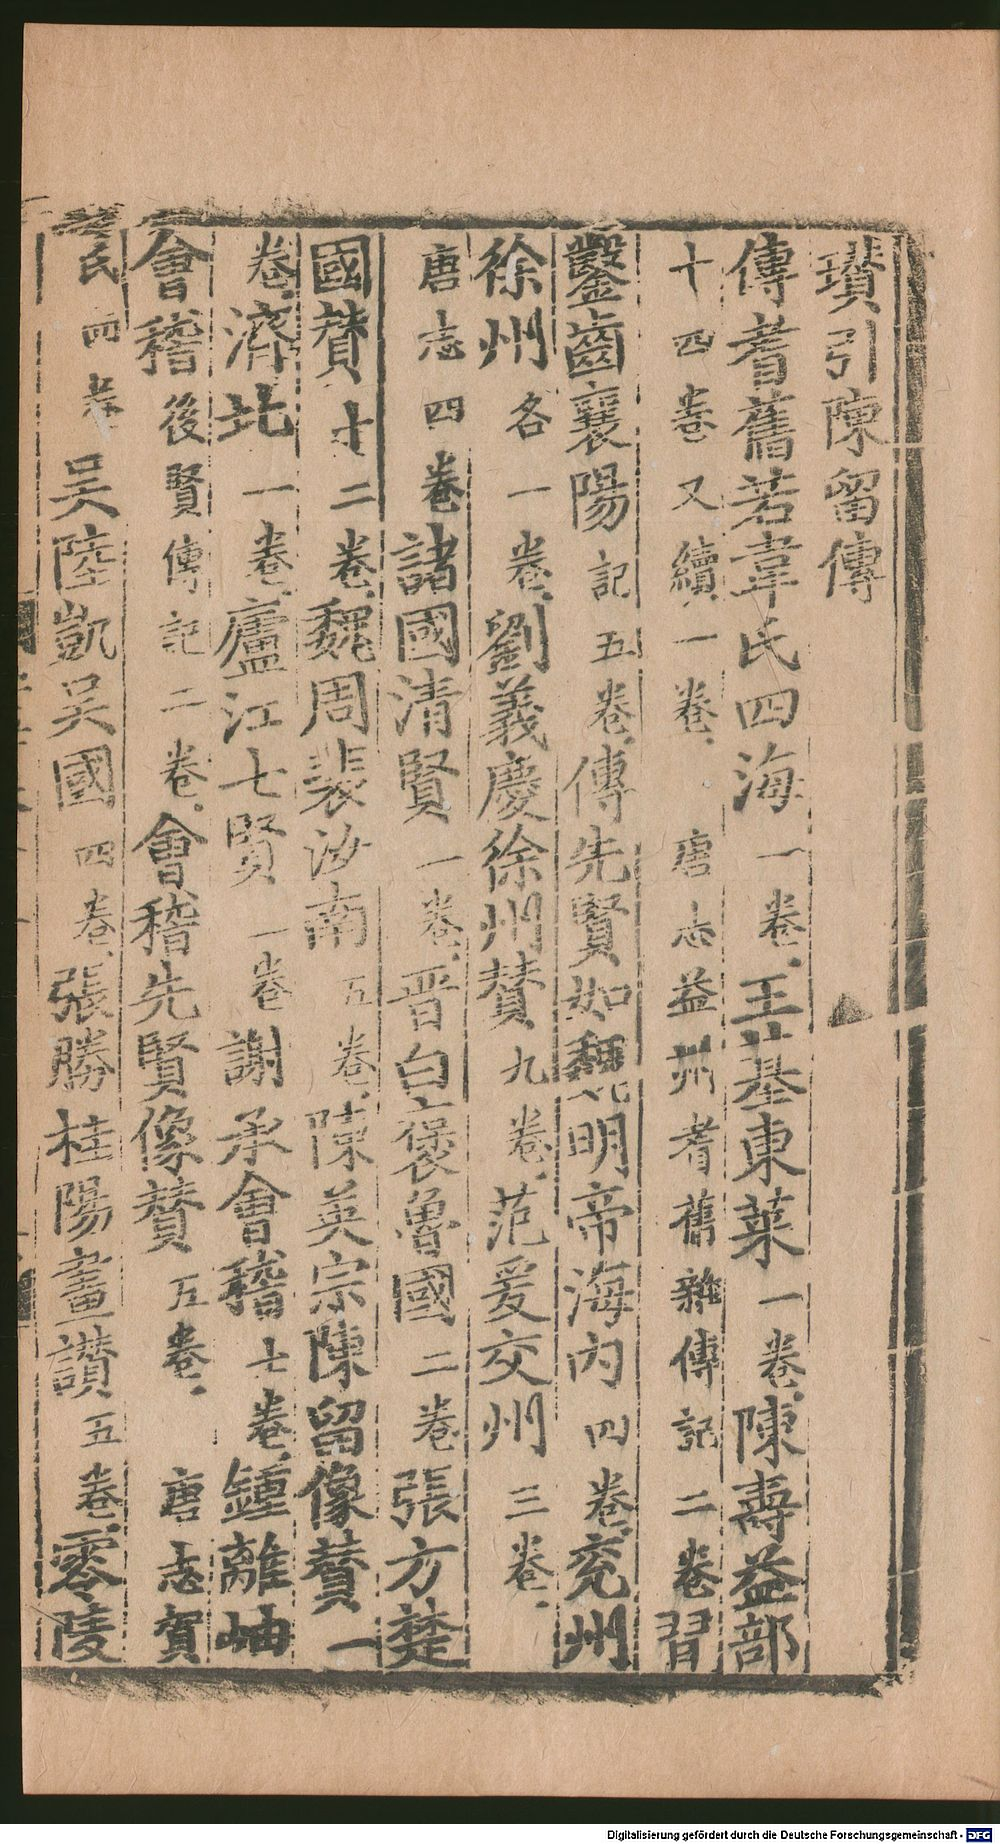 瓚引陳留傳
傳耆舊若韋氏四海一卷王基東萊一卷陳壽益部
十四卷又續一卷唐志益州耆舊雜傳記二卷習
鑿齒襄陽記五卷傳先賢如魏明帝海內四卷兗州
徐州各一卷劉義慶徐州贊九卷范爰交州三卷
唐志四卷諸國清賢一卷晋白褒魯國二卷張方楚
國贊十二卷魏周裴汝南五卷陳英宗陳留像贊一
卷濟北一卷廬江七賢一卷謝承會稽七卷鍾離岫
會稽後賢傳記二卷會稽先賢像贊五卷唐志賀
氏四卷吳陸凱吳國四卷張勝桂陽畫讃五卷零陵
Digitalisierung gefördert durch die Deutsche Forschungsgemeinschaft - DFG